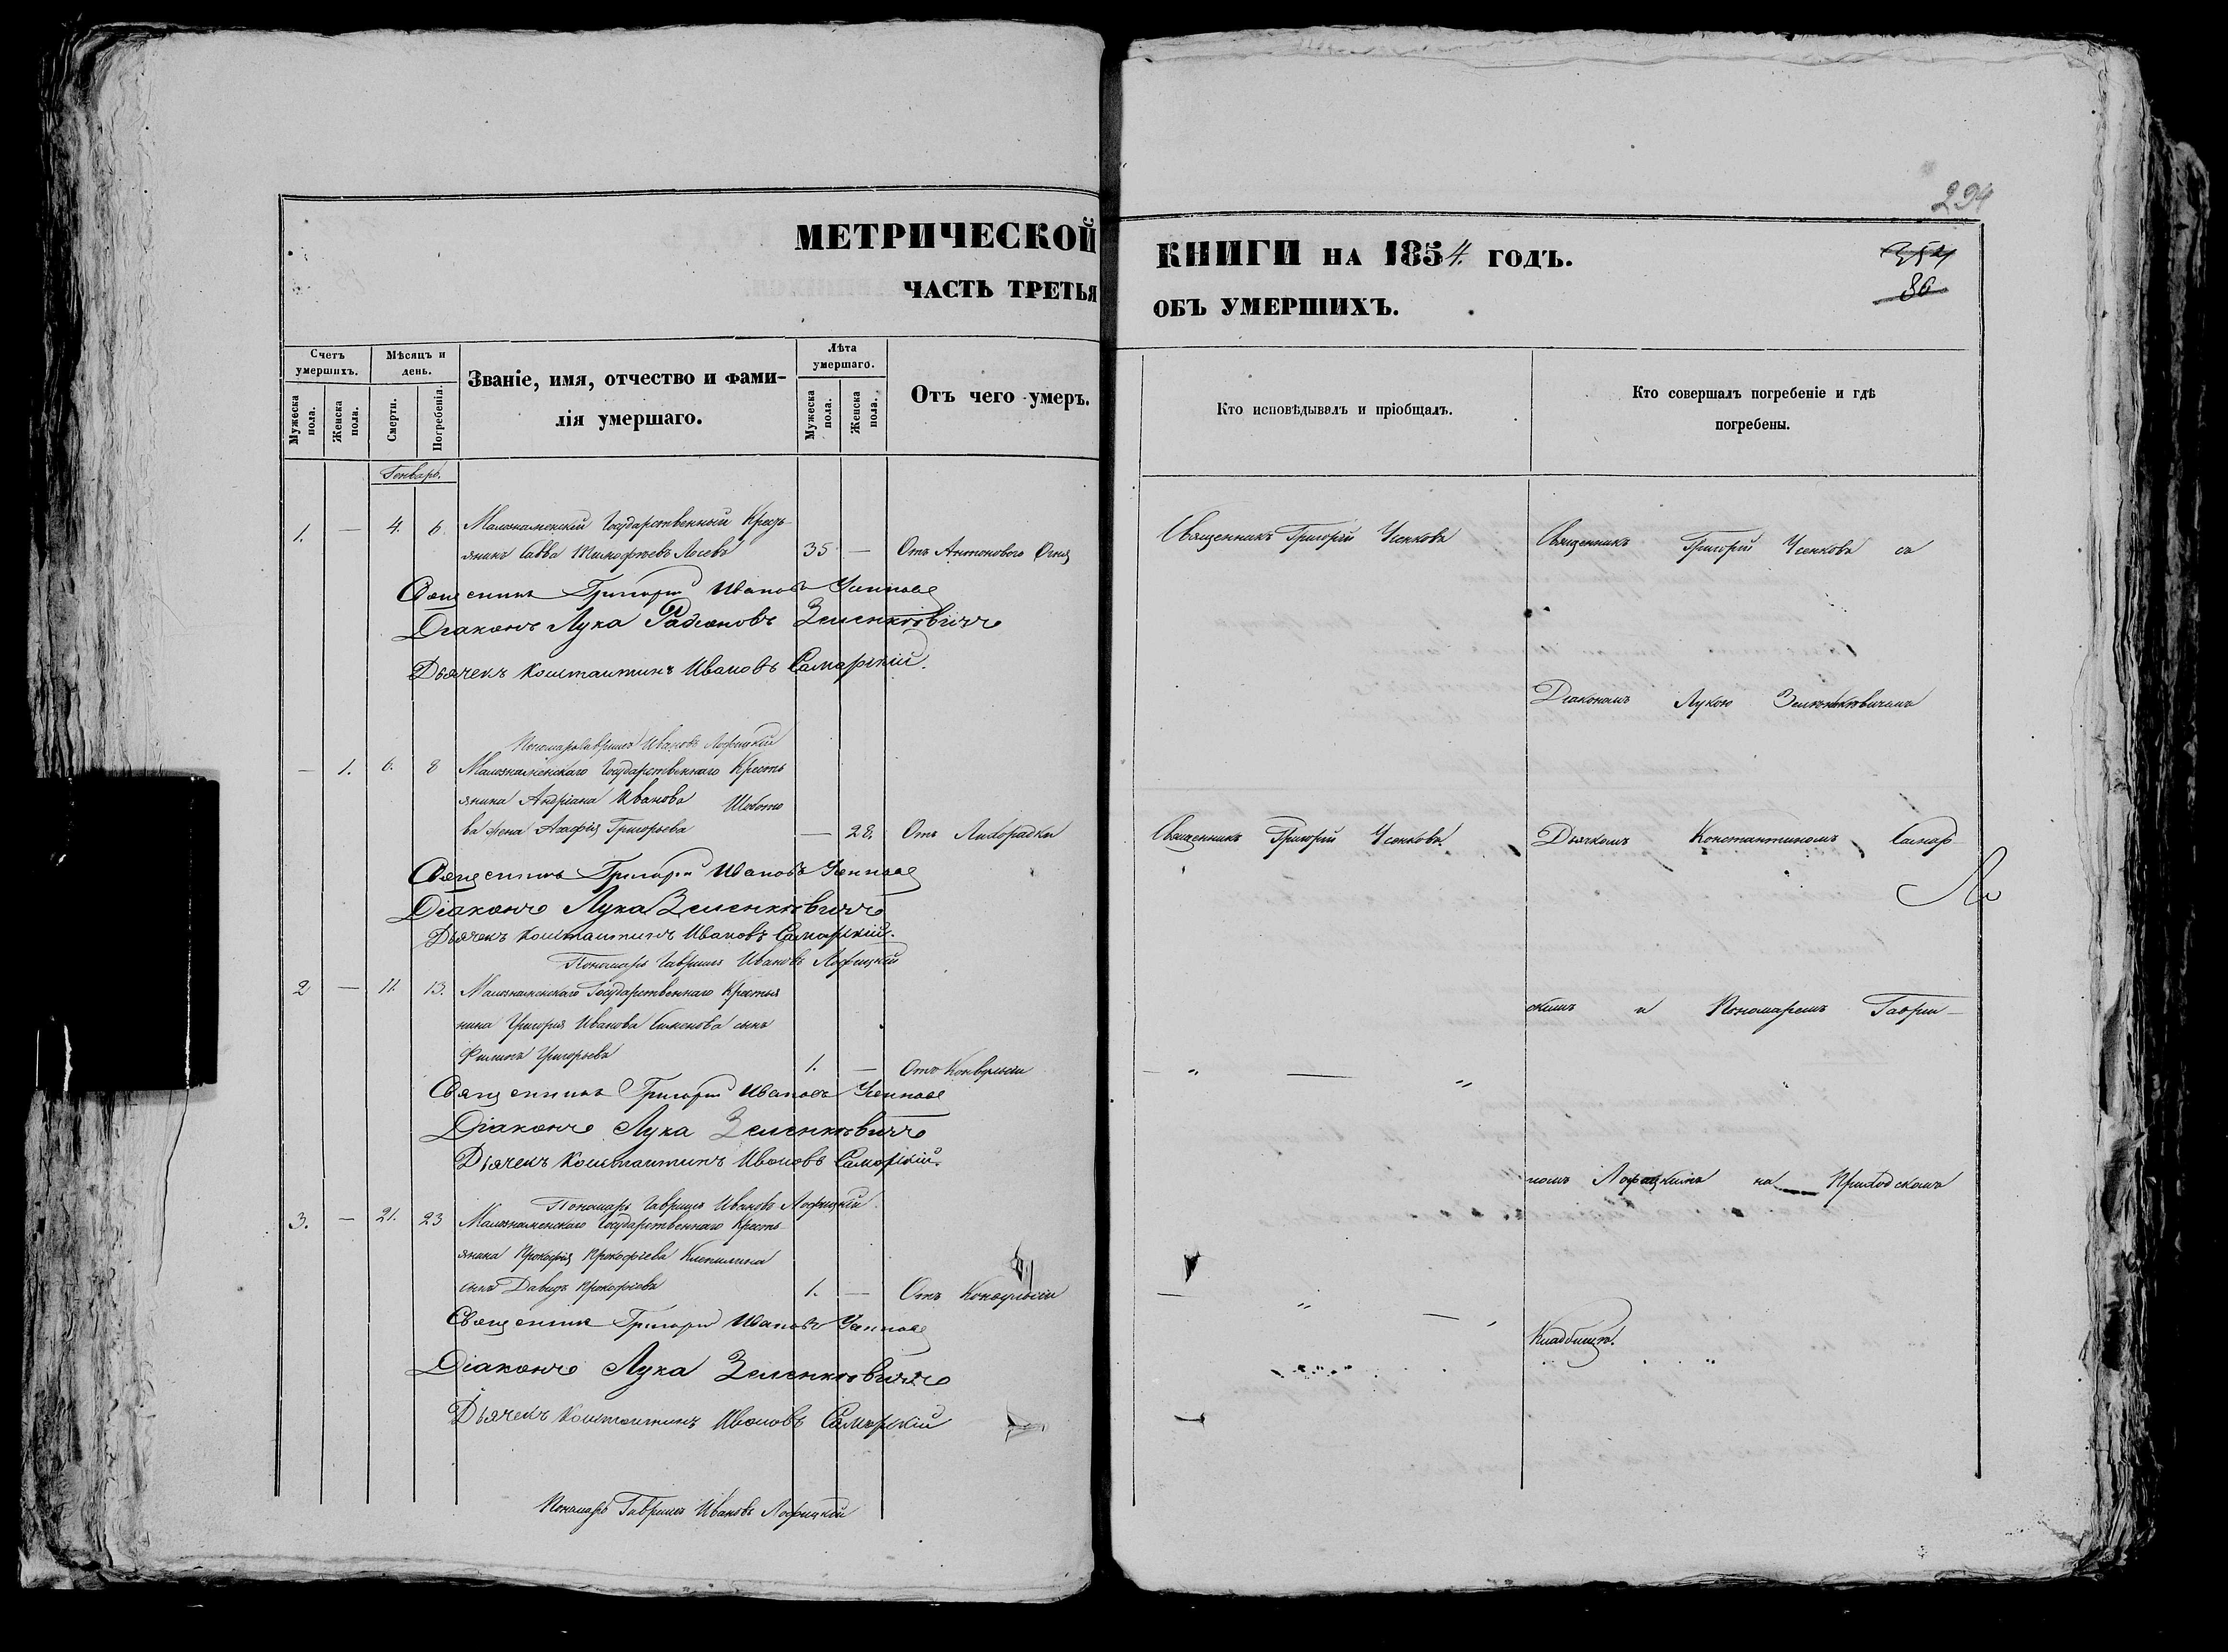 294
354
86
МЕТРИЧЕСКОЙ КНИГИ НА 1854. ГОДЪ.
ЧАСТЬ ТРЕТЬЯ ОБЪ УМЕРШИХЪ.
Счетъ умершихъ.
Мужеска пола.
Женска пола.
Мѣсяцъ и день.
Смерти.
Погребенія.
Званіе, имя, отчество и фами-
лія умершаго.
Лѣта умершаго.
Мужеска пола.
Женска пола.
Отъ чего умеръ.
Кто исповѣдывалъ и пріобщалъ.
Кто совершалъ погребеніе и гдѣ
погребены.
Генварь.
1. — 4. 6. Малознаменскій Государственный Кресть-
янинъ Савва Тимофѣевъ Лосевъ 35 — Отъ Антонового Огня
Священникъ Григорій Усенковъ
Священникъ Григорій Усенковъ съ
Священникъ Григорій Ивановъ Усенковъ
Діаконъ Лука Радіоновъ Зеленкѣвичъ
Дьячекъ Константинъ Ивановъ Самарскій.
Діакономъ Лукою Зеленкѣвичемъ
Пономарь Гавриилъ Ивановъ Лофицкій
— 1. 6. 8 Малознаменскаго Государственнаго Кресть
янина Андріана Иванова Шебото
ва жена Агафія Григорьева — 28. Отъ Лихорадки
Священникъ Григорій Усенковъ
Дьячкомъ Константиномъ Самар-
Священникъ Григорій Ивановъ Усенковъ
Діаконъ Лука Зеленкѣвичъ
Дьячекъ Константинъ Ивановъ Самарскій.
Пономарь Гавриилъ Ивановъ Лофицкій
2 — 11. 13. Малознаменскаго Государственнаго Крестья
нина Григорія Иванова Сименова сынъ
Филипъ Григорьевъ 1. — Отъ Конвульсіи
скимъ и Пономаремъ Гаври-
Священникъ Григорій Ивановъ Усенковъ
Діаконъ Лука Зеленкѣвичъ
Дьячекъ Константинъ Ивановъ Самарскій.
иломъ Лофицкимъ на Приходскомъ
Пономарь Гавриилъ Ивановъ Лофицкій
3. — 21. 23 Малознаменскаго Государственнаго Кресть
янина Прокофія Прокофіева
сынъ Давидъ Прокофіевъ 1. — Отъ Конвульсіи
Кладбищѣ.
Священникъ Григорій Ивановъ Усенковъ
Діаконъ Лука Зеленкѣвичъ
Дьячекъ Константинъ Ивановъ Самарскій
Пономарь Гавриилъ Ивановъ Лофицкій